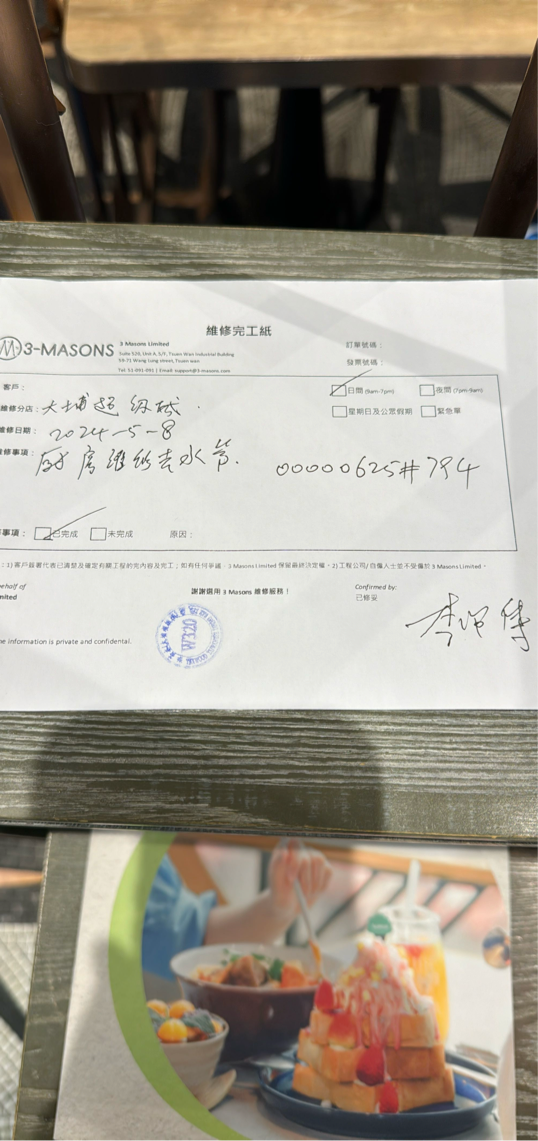 維修完工紙
3-MASONS
3 Masons Limited
Suite 520, Unit A, 5/F, Tsuen Wan Industrial Building
59-71 Wang Lung street, Tsuen wan
Tel: 51-091-091 | Email: support@3-masons.com
訂單號碼:
發票號碼:
客戶:
日間 (9am-7pm)
夜間 (7pm-9am)
維修分店: 大埔超級城
星期日及公眾假期
緊急單
維修日期: 2024-5-8
修事項: 廚房維修去水管. 00000625#794
事項:
已完成
未完成
原因:
: 1) 客戶簽署代表已清楚及確定有關工程的完內容及完工;如有任何爭議,3 Masons Limited 保留最終決定權。2) 工程公司/自僱人士並不受僱於 3 Masons Limited。
ehalf of
mited
謝謝選用 3 Masons 維修服務!
Confirmed by:
已修妥
e information is private and confidental.
W320